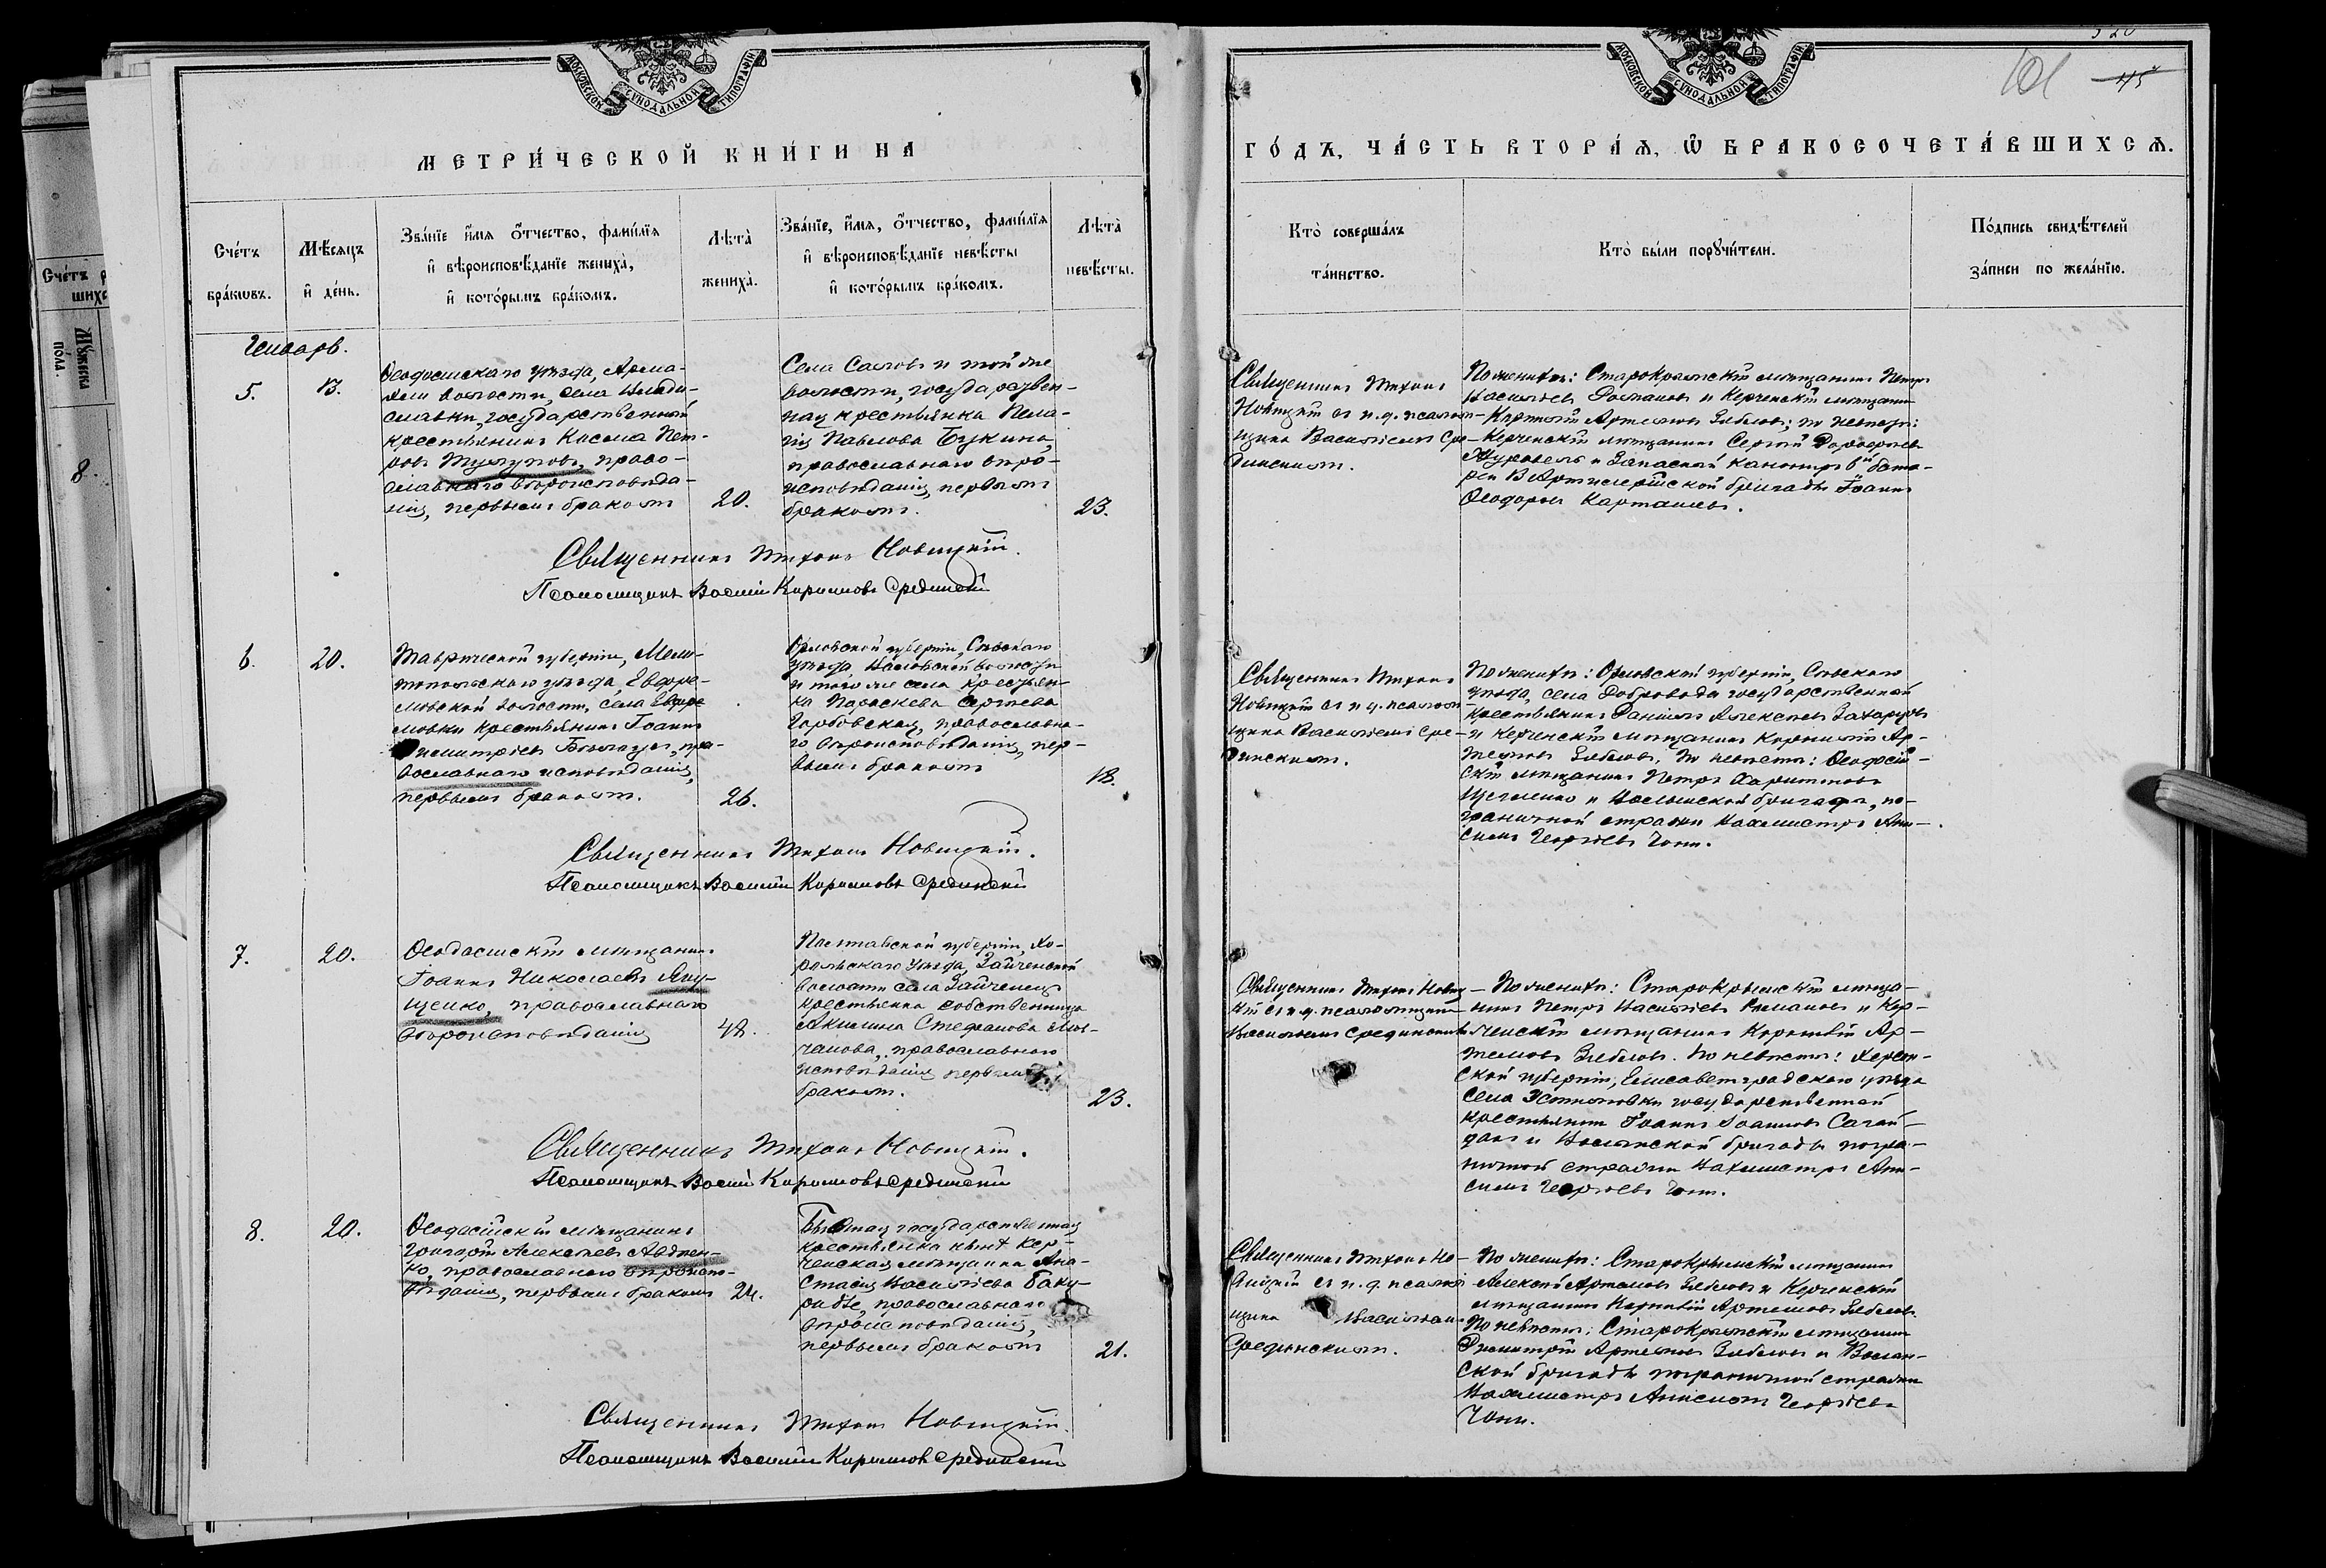 МОСКОВСКОЙ СѴНОДАЛЬНОЙ ТИПОГРАФІИ
МЕТРИ́ЧЕСКОЙ КНИ́ГИ НА
Сче́тъ бра́кѡвъ.
Мѣ́сяцъ и҆ де́нь.
Зва́нїе и҆́мѧ ѻ҆́тчество, фами́лїѧ
и҆ вѣроисповѣ́данїе жениха̀,
и҆ кото́рымъ бра́комъ.
Лѣ́та̀ жениха̀.
Зва́нїе, и҆́мѧ, ѻ҆́тчество, фами́лїѧ
и҆ вѣроисповѣ́данїе невѣ́сты
и҆ кото́рымъ бра́комъ.
Лѣ́та̀ невѣ́сты.
Январь.
5.
13.
Ѳеодосійскаго уѣзда, Арма-
лѣи волости, села Влади-
славки, государственный
крестьянинъ Косьма Пет-
ровъ Тулуповъ, право-
славнаго вѣроисповѣда-
нія, первымъ бракомъ
20.
Села Саловъ и той же
волости, государствен-
ная крестьянка Пела-
гія Павлова Букина,
православнаго вѣро-
исповѣданія, первымъ
бракомъ.
23.
Священникъ Тихонъ Новицкій.
Псаломщикъ Василій Кириловъ Срединскій
6.
20.
Таврической губерніи, Мели-
топольскаго уѣзда, Ефре-
мовской волости, села Ефре
мовки крестьянинъ Іоаннъ
Димитріевъ, пра-
вославнаго исповѣданія,
первымъ бракомъ.
26.
Орловской губерніи, Сѣвскаго
уѣзда волости
и того же села крестьян-
ка Параскева Сергѣева
Горбовская, православна-
го вѣроисповѣданія, пер-
вымъ бракомъ
18.
Священникъ Тихонъ Новицкій.
Псаломщикъ Василій Кириловъ Срединскій
7.
20.
Ѳеодосійскій мѣщанинъ
Іоаннъ Николаевъ Яку-
щенко, православнаго
вѣроисповѣданія
48.
Полтавской губерніи, Хо-
рольскаго уѣзда, Зайченской
волости села Зайченецъ
крестьянка собственница
Акилина Стефанова Мол-
чанова, православнаго
исповѣданія первымъ
бракомъ.
23.
Священникъ Тихонъ Новицкій.
Псаломщикъ Василій Кириловъ Срединскій
8.
20.
Ѳеодосійскій мѣщанинъ
Григорій Алексѣевъ Авдѣен-
ко, православнаго вѣроиспо-
вѣданія, первымъ бракомъ
24.
Бывшая государственная
крестьянка нынѣ Кер-
ченская мѣщанка Ана-
стасія Васильева Баку-
православнаго
вѣроисповѣданія,
первымъ бракомъ
21.
Священникъ Тихонъ Новицкій.
Псаломщикъ Василій Кириловъ Срединскій
МОСКОВСКОЙ СѴНОДАЛЬНОЙ ТИПОГРАФІИ
101
45
ГО́ДЪ, ЧА́СТЬ ВТОРА́Ѧ, Ѡ҆ БРАКОСОЧЕТА́ВШИХСѦ.
Кто̀ соверша́лъ
та́инство.
Кто̀ бы́ли порꙋчи́тели.
По́дпись свидѣ́телей
за́писи по жела́нїю.
Священникъ Тихонъ
Новицкій съ и. д. псалом-
щика Василіемъ Сре-
динскимъ.
По женихѣ: Старокрымскій мѣщанинъ Петръ
Васильевъ Романовъ и Керченскій мѣщанинъ
Корнилій Артемовъ Зибловъ; по невѣстѣ:
Керченскій мѣщанинъ Сергій Дороѳеевъ
Журавель и запасной канониръ 6й бата-
реи 13 Артиллерійской бригады Іоаннъ
Ѳеодоровъ Карташевъ.
Священникъ Тихонъ
Новицкій съ и. д. псалом-
щика Василіемъ Сре-
динскимъ.
По женихѣ: Орловской губерніи, Сѣвскаго
уѣзда, села Доброводы государственный
крестьянинъ Даніилъ Алексѣевъ Захаровъ
и Керченскій мѣщанинъ Корнилій Ар-
темовъ Зибловъ, по невѣстѣ: Ѳеодосій-
скій мѣщанинъ Петръ Харитоновъ
и Волынской бригады, по-
граничной стражи Вахмистръ Ани-
симъ Георгіевъ
Священникъ Тихонъ Новиц-
кій съ и. д. псаломщика
Василіемъ Срединскимъ
По женихѣ: Старокрымскій мѣща-
нинъ Петръ Васильевъ Романовъ и Кер-
ченскій мѣщанинъ Корнилій Ар-
темовъ Зибловъ. По невѣстѣ: Херсон-
ской губерніи, Елисаветградскаго уѣзда
села Устиновки государственный
крестьянинъ Іоаннъ Іоанновъ Сагай-
дакъ и Волынской бригады погра-
ничной стражи Вахмистръ Ани-
симъ Георгіевъ
Священникъ Тихонъ Но-
вицкій съ и. д. псалом-
щика Василіемъ
Срединскимъ.
По женихѣ: Старокрымскій мѣщанинъ
Алексій Артемовъ Зибловъ и Керченскій
мѣщанинъ Корнилій Артемовъ Зибловъ.
По невѣстѣ: Старокрымскій мѣщанинъ
Димитрій Артемовъ Зибловъ и Волын-
ской бригады пограничной стражи
Вахмистръ Анисимъ Георгіевъ